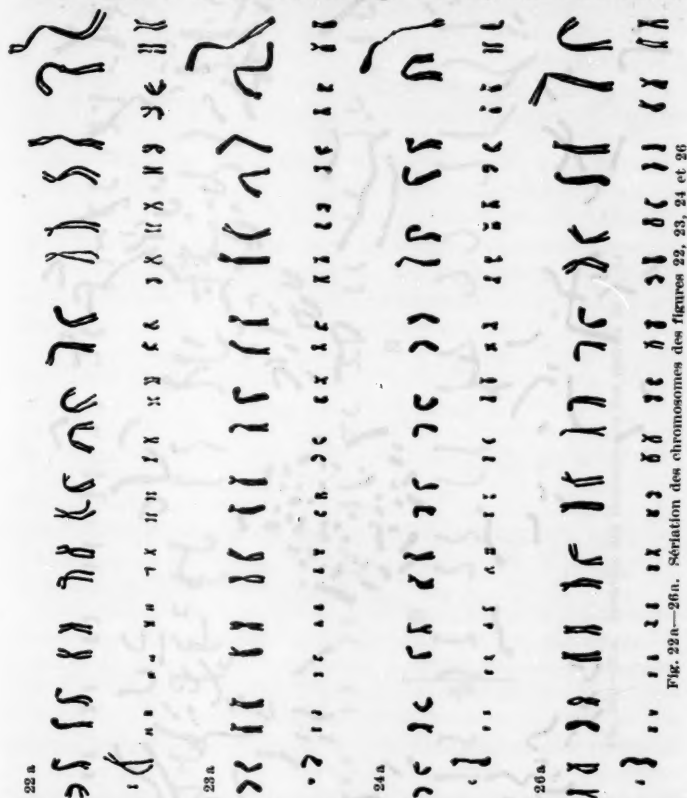 22a
23a
24a
26a
Fig. 22a—26a. Sériation des chromosomes des figures 22, 23, 24 et 26